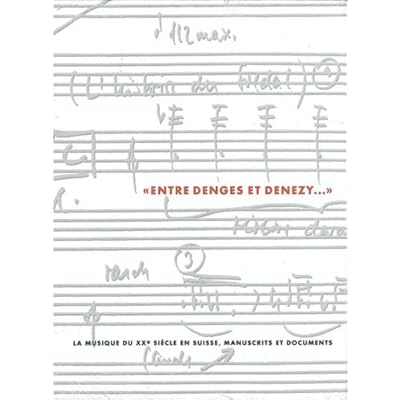 112 max.
(L'histoire du soldat) 1
«ENTRE DENGES ET DENEZY...»
rasch 3
LA MUSIQUE DU XXᵉ SIÈCLE EN SUISSE, MANUSCRITS ET DOCUMENTS